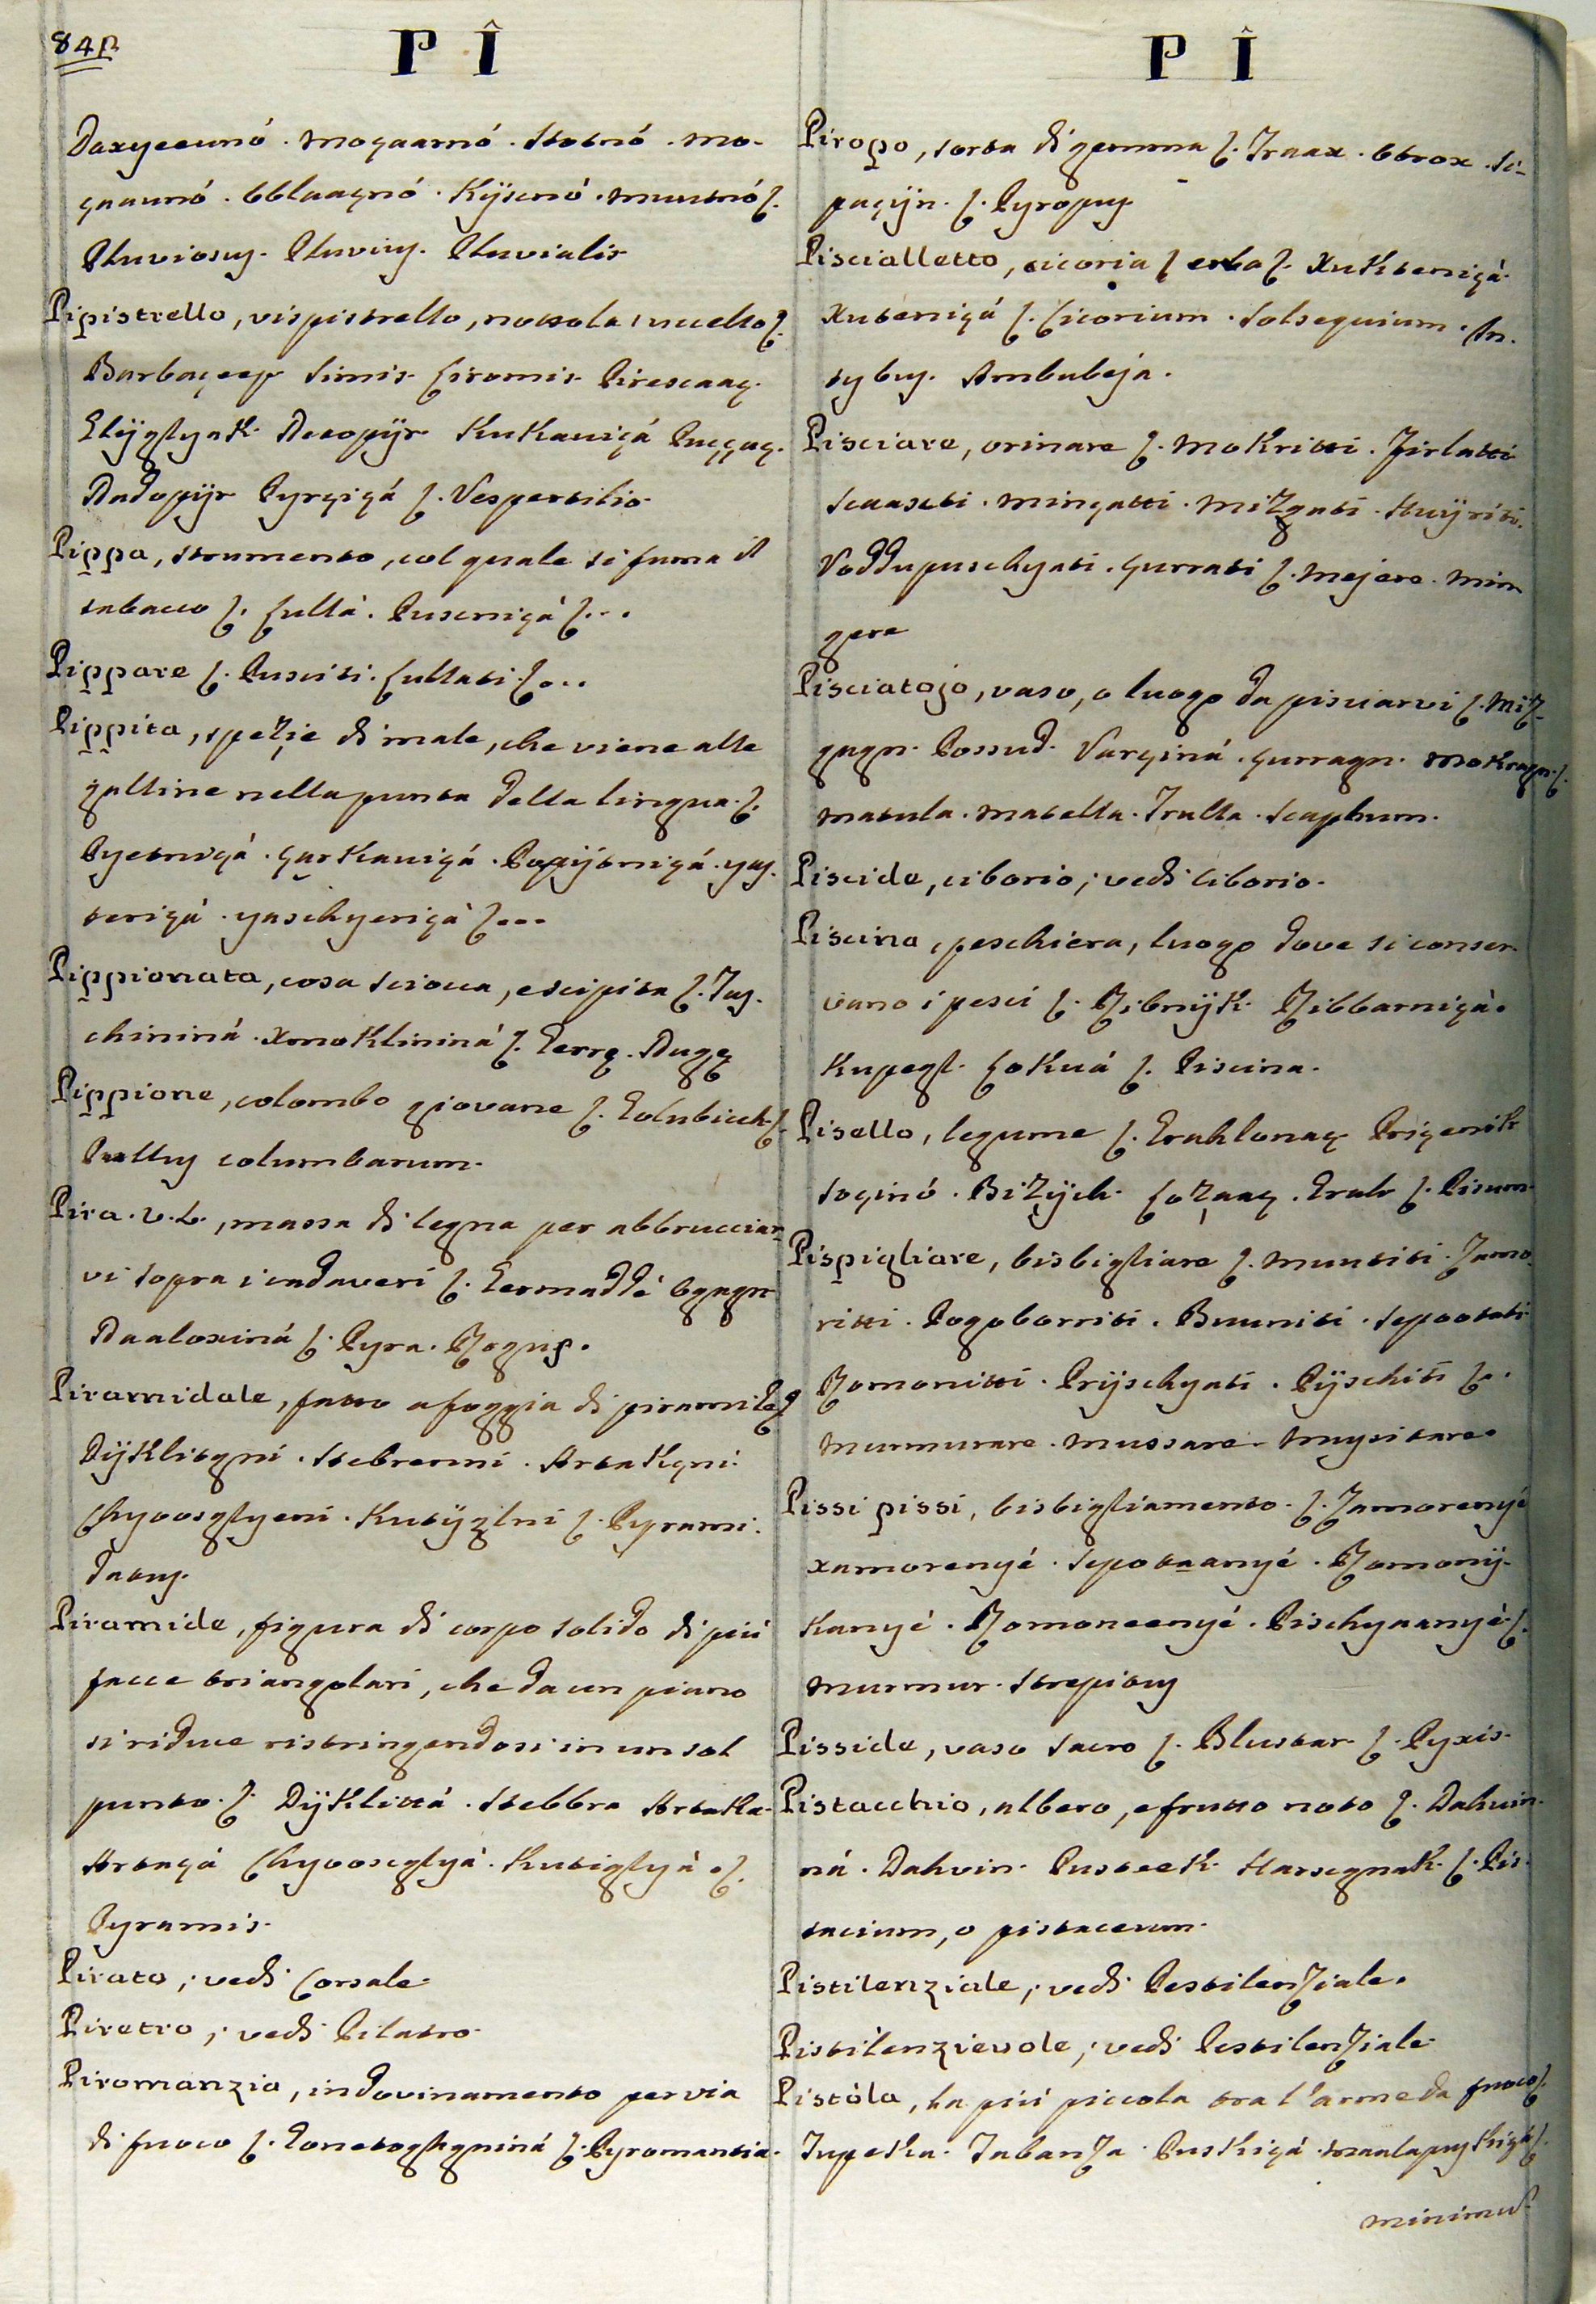 84β
P Î
Daxyecunó. Moçaarnó. Stotnó. Mo-
çnaunó. Obblaaçnó. Kÿscnó. Muutnó ʃ.
Pluviosus. Pluvius. Pluvialis
Pipistrello, vispistrello, nottola, uccello ʃ.
Barbaçeep Simis Ciromis Pirescaaç.
Slÿglyak Netopÿr Kukaviçá Puççaç.
Nadopÿr Pyrçiçá ʃ. Vespertilio
Pippa, strumento, col quale si fuma il
tabacco ʃ. Cullà. Puscniçá ʃ...
Pippare ʃ. Pusciti. Cullati ʃ...
Pippita, spezie di male, che viene alle
galline nella punta della lingua ʃ.
Pyetniçá. çarkaviçá. Popÿtniçá. yas.
teriçá. yaschyeriçà ʃ...
Pippionata, cosa sciocca, e scipita ʃ. Tas.
chininá. Xmoklininá ʃ. Gerrę. Nugę
Pippione, colombo giovane ʃ. Golubicch ʃ.
Pullus columbarum.
Pira. v. L., massa di legna per abbrucciar
vi sopra i cadaveri ʃ. Germaddé ognagn
Naaloxiná ʃ. Pyra. Rogus.
Piramidale, fatto a foggia di piramide ʃ
Dÿklitçni. Stebrenni. Artakçni.
Chyoosglyeni. Kutÿzlni ʃ. Pyrami.
datus.
Piramide, figura di corpo solido di piú
facce triangolari, che da un piano
si riduce ristringendosi in un sol
punto ʃ. Dÿklittá. Stebbra Artaka.
Artaçá Chyooscglyà. Kutiglyà ʃ.
Pyramis.
Pirato; vedi Corsale
Piretro; vedi Pilatro
Piromanzia, indovinamento per via
di fuoco ʃ. Gonetoghgniná ʃ. Pyromantia.
P Î
Piropo, sorta di gemma ʃ. Traax. Otrox. Si-
paçÿn. ʃ. Pyropus
Piscialletto, cicoria ʃ erba ʃ. Xukteniçá.
Xuteniçá ʃ. Cicorium. Solsequium. In.
tybus. Ambubeja.
Pisciare, orinare ʃ. Mokritti. Jirlatti
Scaascti. Minçatti. Mizgati. Stuÿriti.
Voddupuschyati. çurrati ʃ. Mejere. Min
gere
Pisciatojo, vaso, o luogo da pisciarvi ʃ. Miz-
gagn. Possud. Varçiná. çurragn. Mokragn ʃ.
Matula. Matella. Trulla. Scaphum.
Piscide, ciborio; vedi ciborio.
Piscina, peschiera, luogo dove si conser.
vano i pesci ʃ. Ribnÿk Ribbarniçà.
Kupegl. Lokuá ʃ. Piscina.
Pisello, legume ʃ. Grahlonaç Prigenik
Soçinó. Bizÿch. Cozaaç. Grah ʃ. Pisum
Pispigliare, bisbigliare ʃ. Muutiti. Jamo
ritti. Pogoborriti. Buuniti. Scpootati
Romonitti. Prÿschyati. Pÿschiti ʃ.
Murmurare. Mussare. Mussitare.
Pissi pissi, bisbigliamento. ʃ. Jamorenyé
xamorenyé. Scpotaanyé. Romonÿ-
kanyé. Romoneenyé. Pischyaanyé ʃ.
Murmur. Strepitus
Pisside, vaso sacro ʃ. Blustar ʃ. Pyxis.
Pistacchio, albero, e frutto noto ʃ. Dahvin.
ná. Dahvin. Pusteek Harscgnak ʃ. Pis.
tacium, o pistaceum.
Pistilenziale; vedi Pestilenziale.
Pistilenzievole; vedi Pestilenziale
Pistòla, la piú piccola tra l'arme da fuoco ʃ.
Tupeka. Tabanza. Puskiçá. Maalapuskiçá ʃ.
minimus